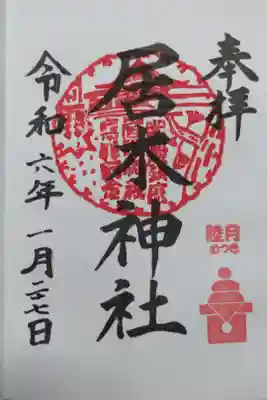 奉拝
居木神社
令和六年一月二十七日
睦月
むつき